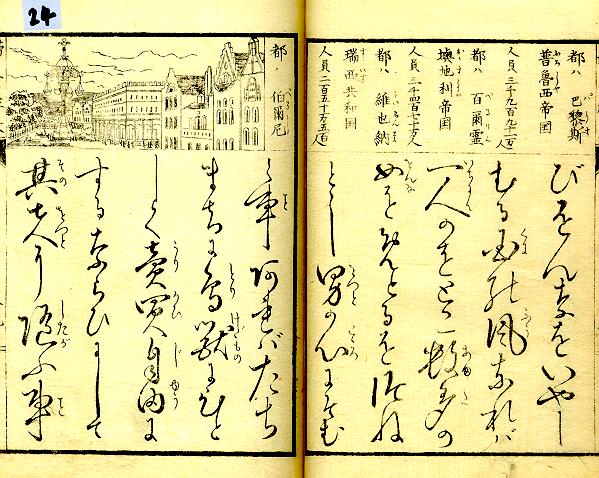 24
都ハ 巴黎斯
普魯西帝国
人員 三千九百九十一万
都ハ 百爾霊
墺地利帝国
人員 三千四百七十万人
都ハ 維也納
瑞西共和国
人員 二百五十万五百
びをんなをいやし
むる国の風なれバ
一人のをとこ数多の
女をめとるをつね
とし男の心にそむ
都ハ 伯爾尼
く事阿れバたち
まちに鳥獣にひと
しく賣買自由に
するならひにして
其主人に随ふ事